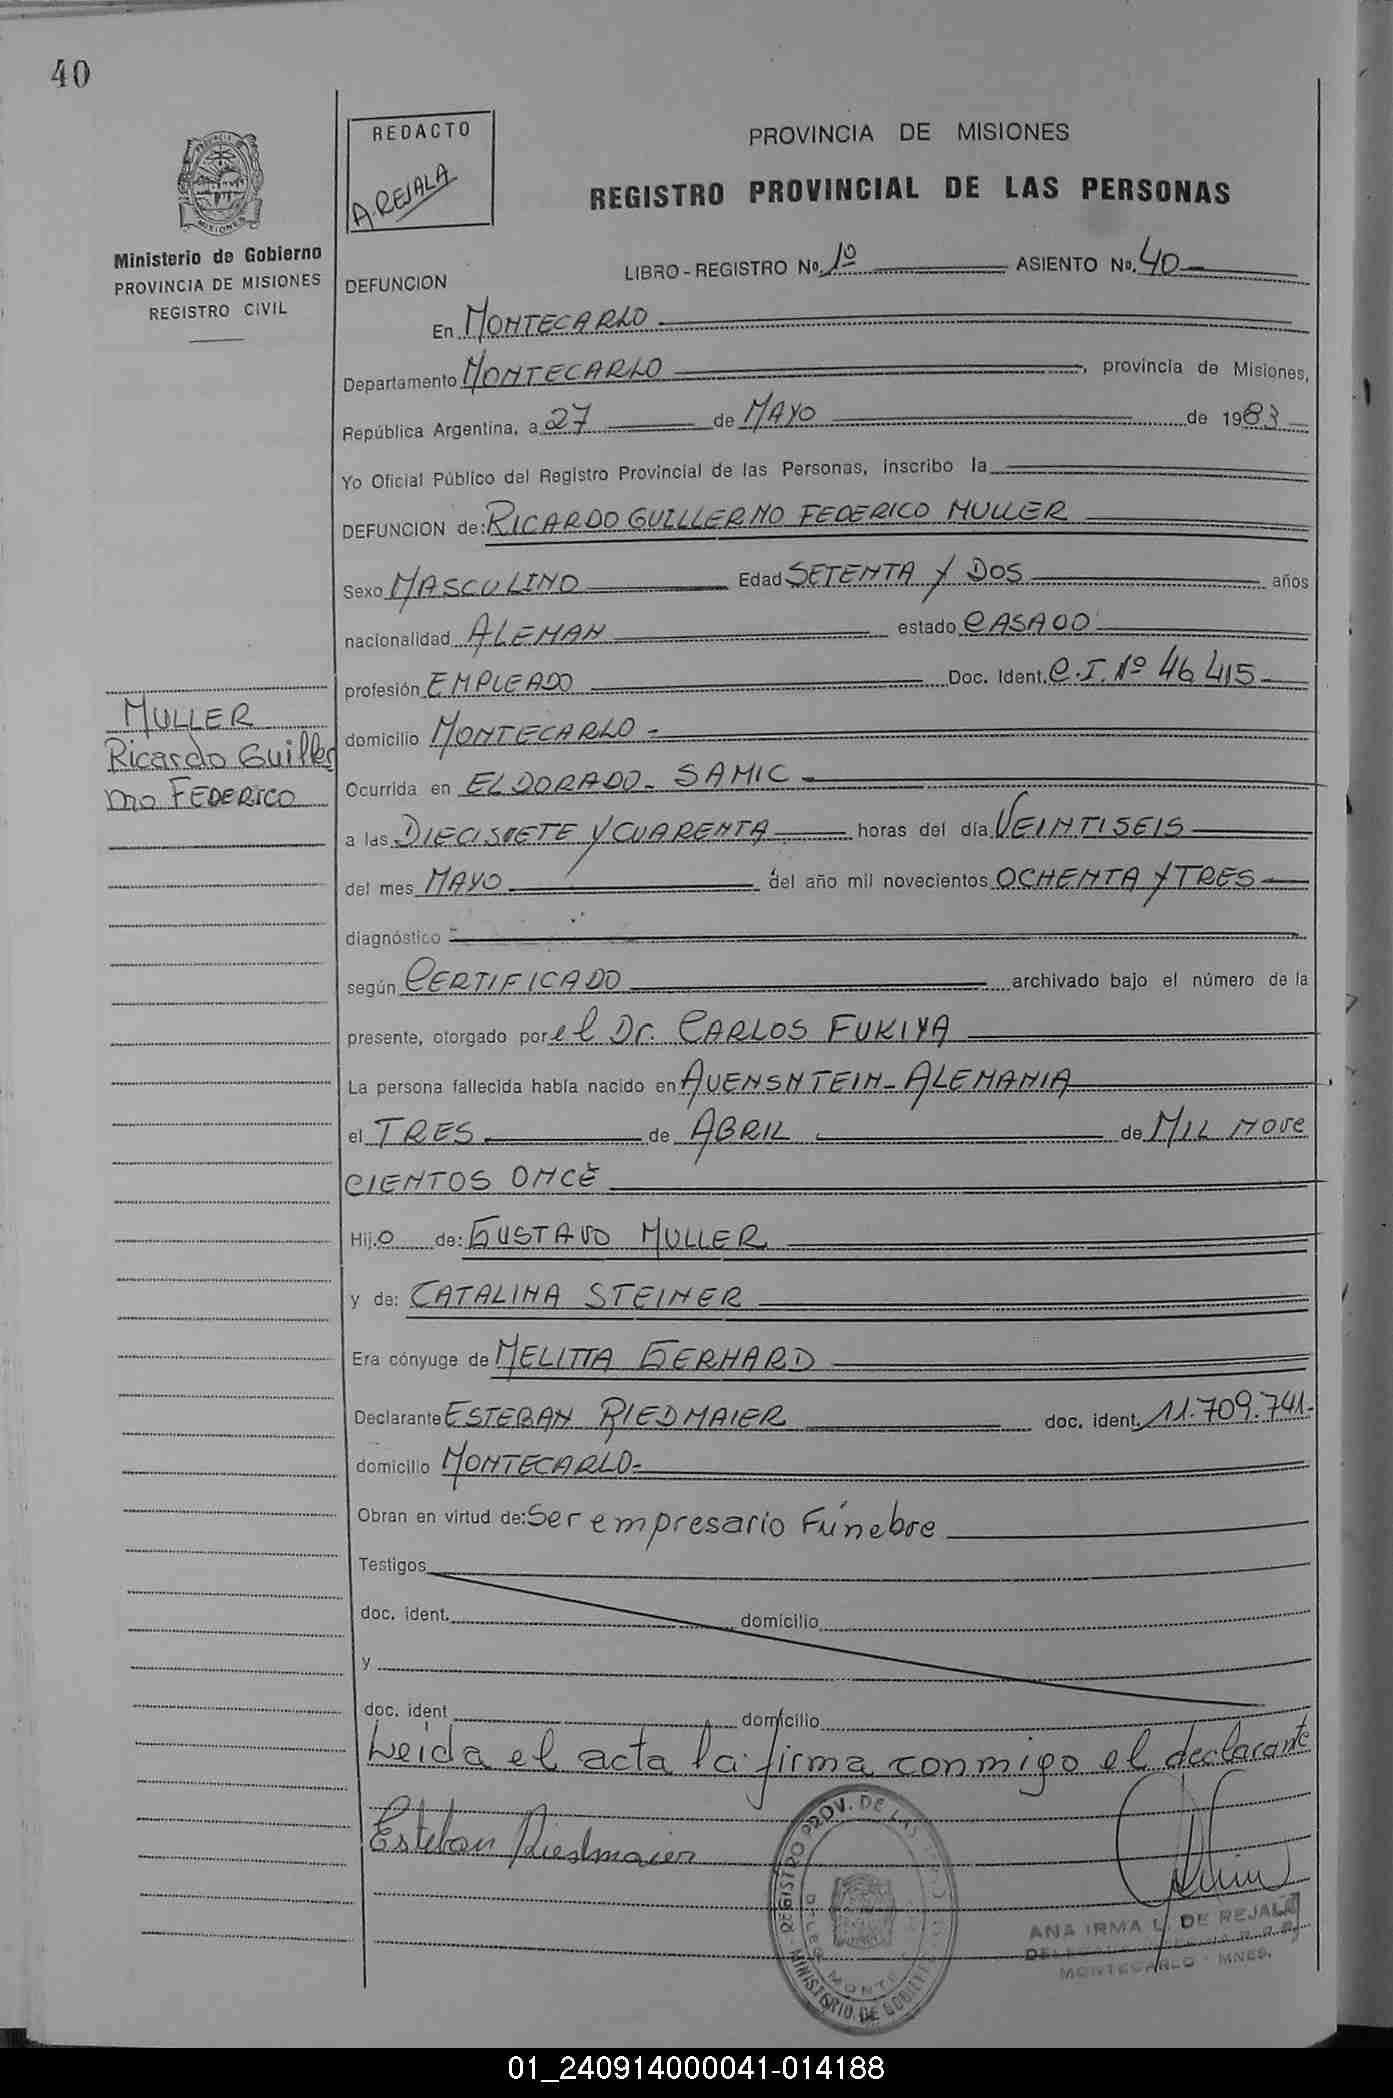 40
REDACTO
A. REJALA
PROVINCIA DE MISIONES
REGISTRO PROVINCIAL DE LAS PERSONAS
MISIONES
Ministerio de Gobierno
PROVINCIA DE MISIONES
REGISTRO CIVIL
DEFUNCION
LIBRO - REGISTRO No. 1º ASIENTO No. 40
En MONTECARLO
Departamento MONTECARLO, provincia de Misiones,
República Argentina, a 27 de MAYO de 1983
Yo Oficial Público del Registro Provincial de las Personas, inscribo la
DEFUNCION de: RICARDO GUILLERMO FEDERICO MULLER
Sexo MASCULINO Edad SETENTA Y DOS años
nacionalidad ALEMAN estado CASADO
profesión EMPLEADO Doc. Ident. C.I. Nº 46415
MULLER
Ricardo Guiller
mo FEDERICO
domicilio MONTECARLO -
Ocurrida en ELDORADO - SAMIC -
a las DIECISIETE Y CUARENTA horas del día VEINTISEIS
del mes MAYO del año mil novecientos OCHENTA Y TRES
diagnóstico
según CERTIFICADO archivado bajo el número de la
presente, otorgado por el Dr. CARLOS FUKIYA
La persona fallecida había nacido en AUENSNTEIN - ALEMANIA
el TRES de ABRIL de MIL NOVE
CIENTOS ONCE
Hijo de: GUSTAVO MULLER
y de: CATALINA STEINER
Era cónyuge de MELITTA GERHARD
Declarante ESTEBAN RIEDMAIER doc. ident. 11.709.741-
domicilio MONTECARLO-
Obran en virtud de: Ser empresario Fúnebre
Testigos
doc. ident. domicilio
y
doc. ident domicilio
Leída el acta la firma conmigo el declarante
Esteban Riedmaier
REGISTRO PROV. DE LAS
MINISTERIO DE GOBIERNO
MONTE
ANA IRMA L. DE REJALA
MONTECARLO - MNES.
01_240914000041-014188